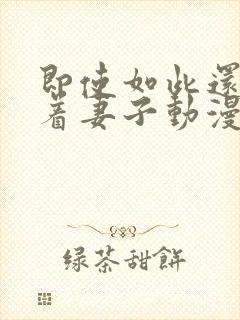 即使如此還
著妻子動漫
绿茶甜餅